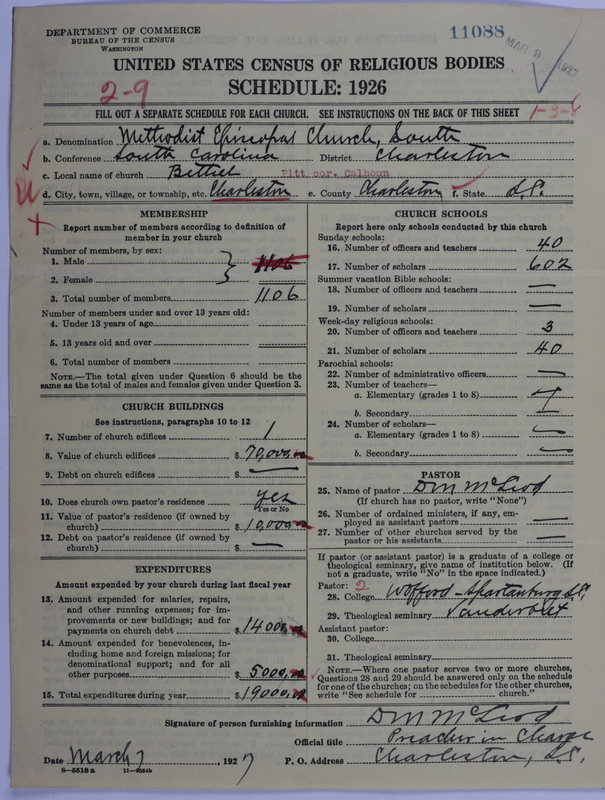 DEPARTMENT OF COMMERCE
BUREAU OF THE CENSUS
WASHINGTON
11088
MAR 9 1927
UNITED STATES CENSUS OF RELIGIOUS BODIES
2-9
SCHEDULE: 1926
FILL OUT A SEPARATE SCHEDULE FOR EACH CHURCH. SEE INSTRUCTIONS ON THE BACK OF THIS SHEET
1-3-8
a. Denomination Methodist Episcopal Church, South
b. Conference South Carolina District Charleston
c. Local name of church Bethel Pitt cor. Calhoun
d. City, town, village, or township, etc. Charleston e. County Charleston f. State S.C.
MEMBERSHIP
Report number of members according to definition of
member in your church
Number of members, by sex:
1. Male 1106
2. Female
3. Total number of members 1106
Number of members under and over 13 years old:
4. Under 13 years of age
5. 13 years old and over
6. Total number of members
NOTE.—The total given under Question 6 should be the
same as the total of males and females given under Question 3.
CHURCH BUILDINGS
See instructions, paragraphs 10 to 12
7. Number of church edifices 1
8. Value of church edifices $ 70,000.00
9. Debt on church edifices $ —
10. Does church own pastor's residence yes
Yes or No
11. Value of pastor's residence (if owned by
church) $ 10,000.00
12. Debt on pastor's residence (if owned by
church) $ —
EXPENDITURES
Amount expended by your church during last fiscal year
13. Amount expended for salaries, repairs,
and other running expenses; for im-
provements or new buildings; and for
payments on church debt $ 14000.00
14. Amount expended for benevolences, in-
cluding home and foreign missions; for
denominational support; and for all
other purposes $ 5000.00
15. Total expenditures during year $ 19000.00
CHURCH SCHOOLS
Report here only schools conducted by this church
Sunday schools:
16. Number of officers and teachers 40
17. Number of scholars 602
Summer vacation Bible schools:
18. Number of officers and teachers —
19. Number of scholars —
Week-day religious schools:
20. Number of officers and teachers 3
21. Number of scholars 40
Parochial schools:
22. Number of administrative officers —
23. Number of teachers—
a. Elementary (grades 1 to 8)
b. Secondary
24. Number of scholars—
a. Elementary (grades 1 to 8) —
b. Secondary —
PASTOR
25. Name of pastor D M McLeod
(If church has no pastor, write "None")
26. Number of ordained ministers, if any, em-
ployed as assistant pastors —
27. Number of other churches served by the
pastor or his assistants —
If pastor (or assistant pastor) is a graduate of a college or
theological seminary, give name of institution below. (If
not a graduate, write "No" in the space indicated.)
Pastor: 2
28. College Wofford - Spartanburg S.C.
29. Theological seminary Vanderbilt
Assistant pastor:
30. College
31. Theological seminary
NOTE.—Where one pastor serves two or more churches,
Questions 28 and 29 should be answered only on the schedule
for one of the churches; on the schedules for the other churches,
write "See schedule for church."
Signature of person furnishing information D M McLeod
Official title Preacher in Charge
Date March 7, 1927 P. O. Address Charleston, S.C.
8—5518 a